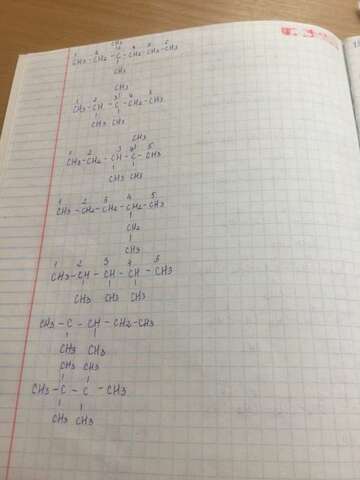 CH3
1 2 3 4 5 6
CH3-CH2-C-CH2-CH2-CH3
CH3
CH3
1 2 3 4 5
CH3-CH-C-CH2-CH3
CH3 CH3
CH3
1 2 3 4 5
CH3-CH2-CH-C-CH3
CH3 CH3
1 2 3 4 5
CH3-CH2-CH2-CH2-CH3
CH2
CH3
1 2 3 4 5
CH3-CH-CH-CH-CH3
CH3 CH3 CH3
CH3-C-CH-CH2-CH3
CH3 CH3
CH3 CH3
CH3-C-C-CH3
CH3 CH3